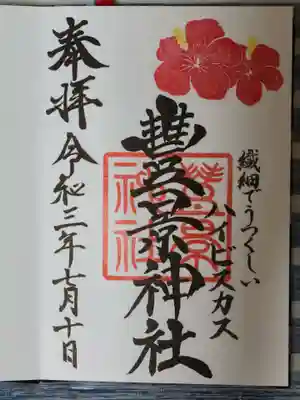 繊細でうつくしい
ハイビスカス
豐景神社
豐景
神社
奉拝 令和三年七月十日